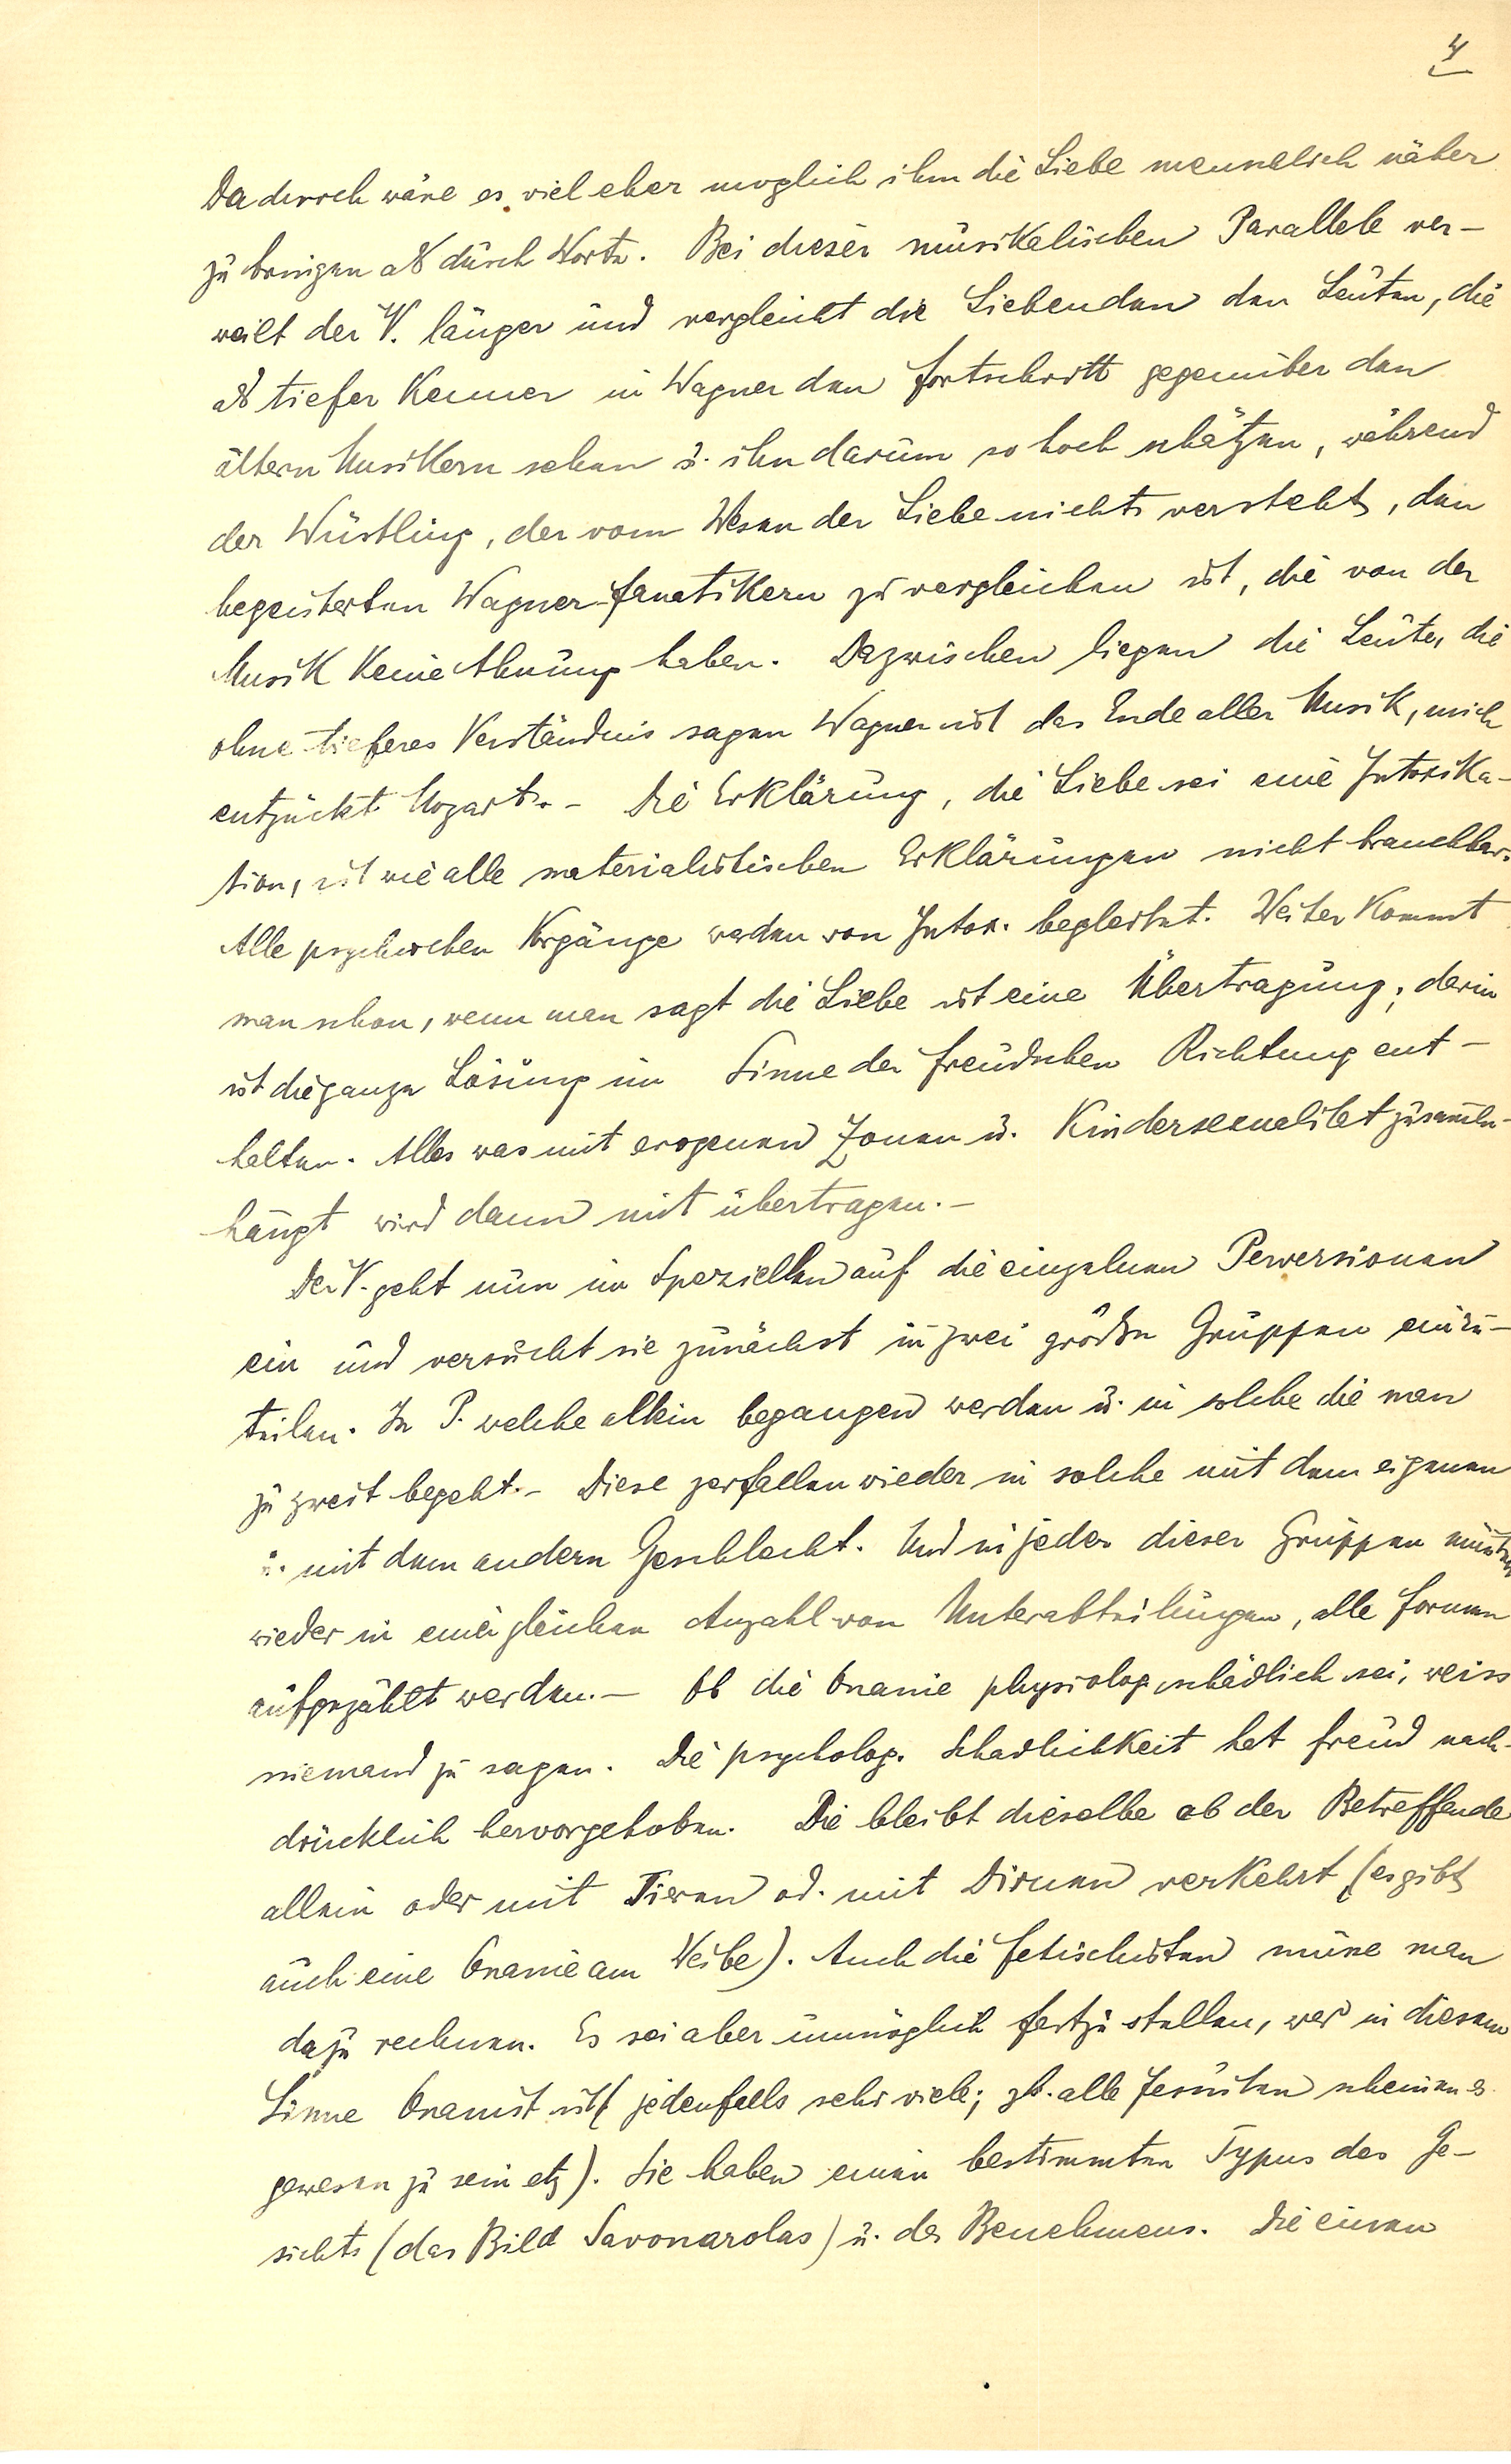 4
Dadurch wäre es viel eher möglich ihm die Liebe menschlich näher
zu bringen als durch Worte. Bei dieser musikalischen Parallele ver-
weilt der V. länger und vergleicht die Liebenden den Leuten, die
als tiefer Kenner in Wagner den Fortschritt gegenüber den
ältern Musikern sehen u. ihn darum so hoch schätzen, während
der Wüstling, der vom Wesen der Liebe nichts versteht, den
begeisterten Wagner-fanatikern zu vergleichen ist, die von der
Musik keine Ahnung haben. Dazwischen liegen die Leute, die
ohne tieferes Verständnis sagen Wagner ist das Ende aller Musik, mich
entzückt Mozart. – Die Erklärung, die Liebe sei eine Intoxika-
tion, ist wie alle materialistischen Erklärungen nicht brauchbar.
Alle psychischen Vorgänge werden von Intox. begleitet. Weiter kommt
man schon, wenn man sagt die Liebe ist eine Übertragung; darin
ist die ganze Lösung im Sinne der Freudschen Richtung ent-
halten. Alles was mit erogenen Zonen u. Kindersexualität zusammen-
hängt wird dann mit übertragen. –
Der V. geht nun im Speziellen auf die einzelnen Perversionen
ein und versucht sie zunächst in zwei große Gruppen einzu-
teilen. In P. welche allein begangen werden u. in solche die man
zu zweit begeht. – Diese zerfallen wieder in solche mit dem eigenen
u. mit dem andern Geschlecht. Und in jeder dieser Gruppen müsten
wieder in einer gleichen Anzahl von Unterabteilungen, alle Formen
aufgezählt werden. – Ob die Onanie physiolog. schädlich sei, weiss
niemand zu sagen. Die psycholog. Schädlichkeit hat Freud nach-
drücklich hervorgehoben. Die bleibt dieselbe ob der Betreffende
allein oder mit Tieren od. mit Dirnen verkehrt (es gibt
auch eine Onanie am Weibe). Auch die Fetischisten müsse man
dazu rechnen. Es sei aber unmöglich festzustellen, wer in diesem
Sinne Onanist ist (jedenfalls sehr viele; zb. alle Jesuiten scheinen es
gewesen zu sein etz). Sie haben einen bestimmten Typus des Ge-
sichts (das Bild Savonarolas) u. des Benehmens. Die einen